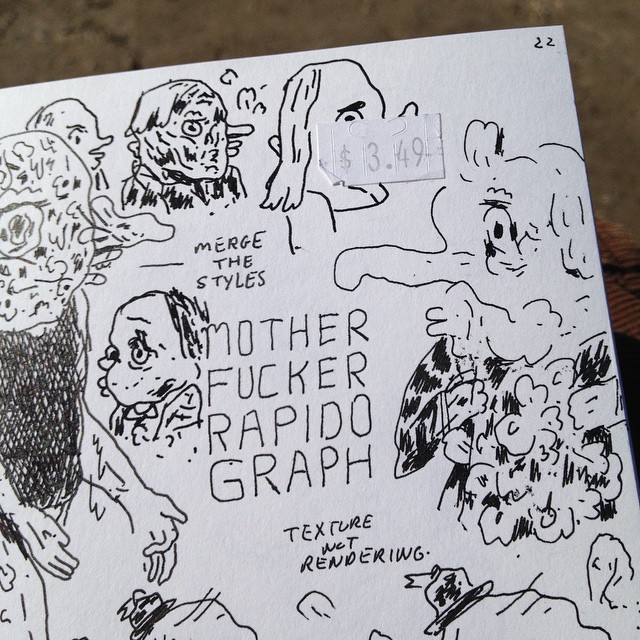 22
$ 3.49
MERGE
THE
STYLES
MOTHER
FUCKER
RAPIDO
GRAPH
TEXTURE
NOT
RENDERING.